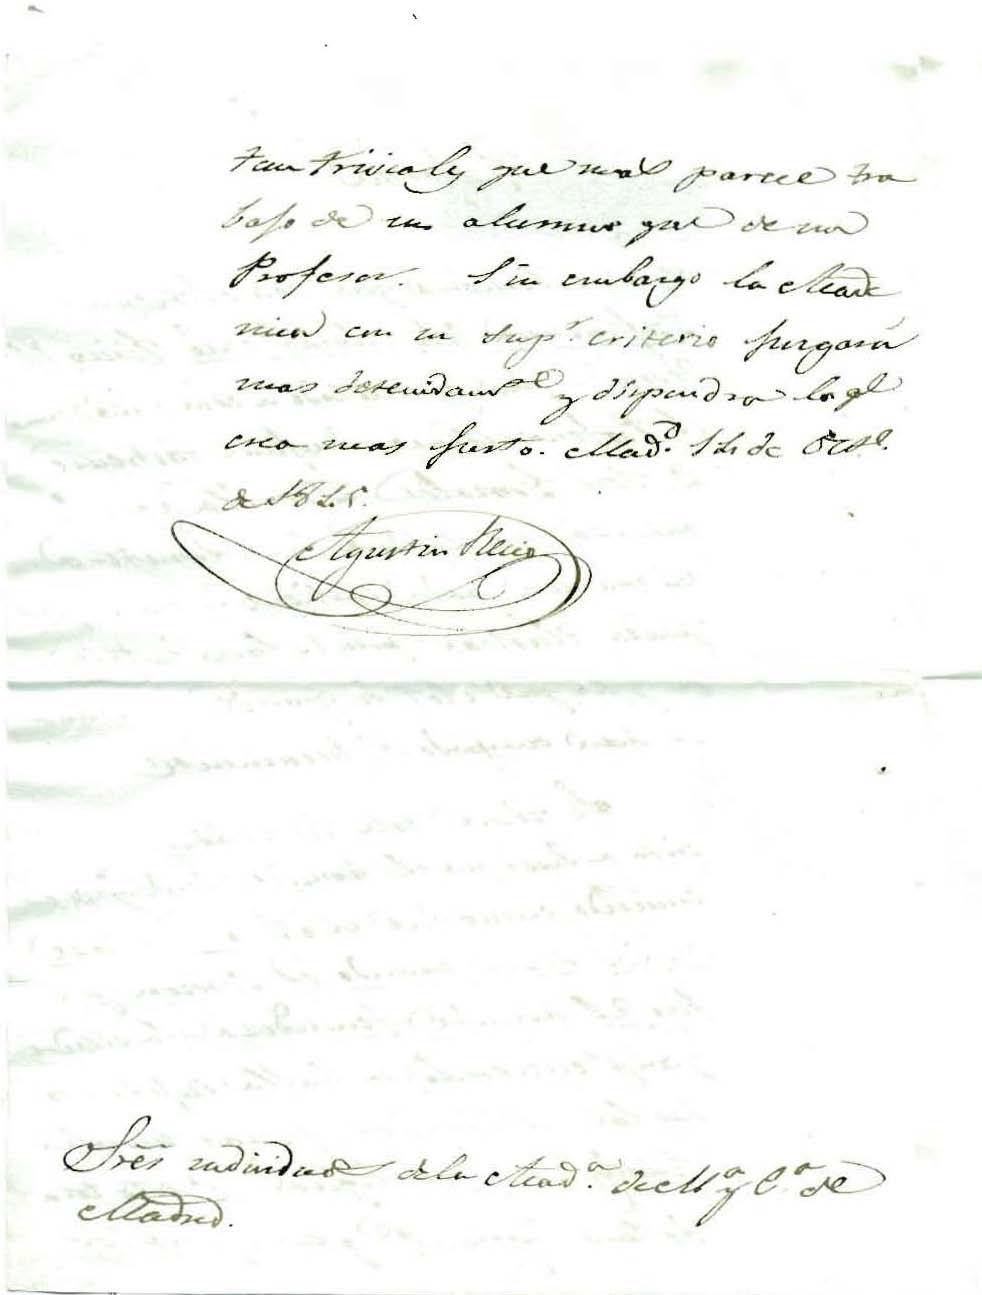 tan triviales que mas parece tra
bajo de un alumno que de un
Profesor. Sin embargo la Acade
mia con su sup.r criterio juzgará
mas y dispondra lo q.e
crea mas justo. Mad.d de Oct.e
de
Agustin Recio
Sres individuos de la Acad.a de M.a y C.a de
Madrid.